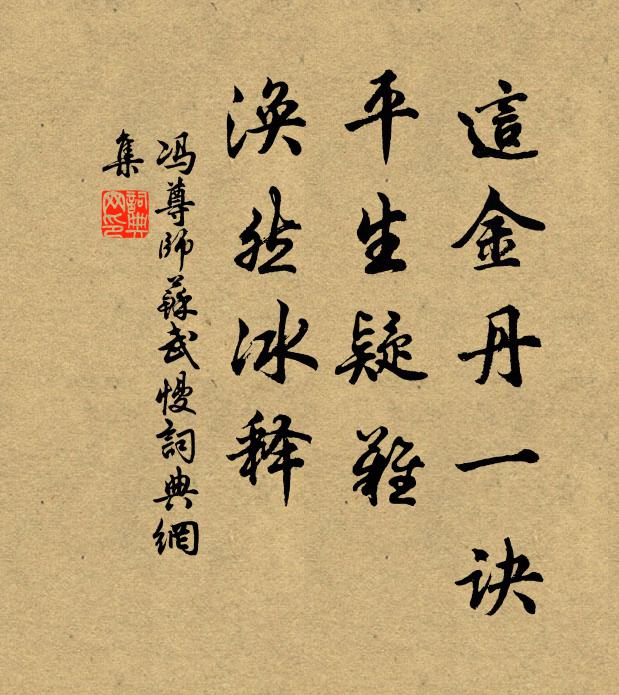 這金丹一訣
平生疑難
渙然冰釋
冯尊師蘇武慢詞典網
集
詞典
网印